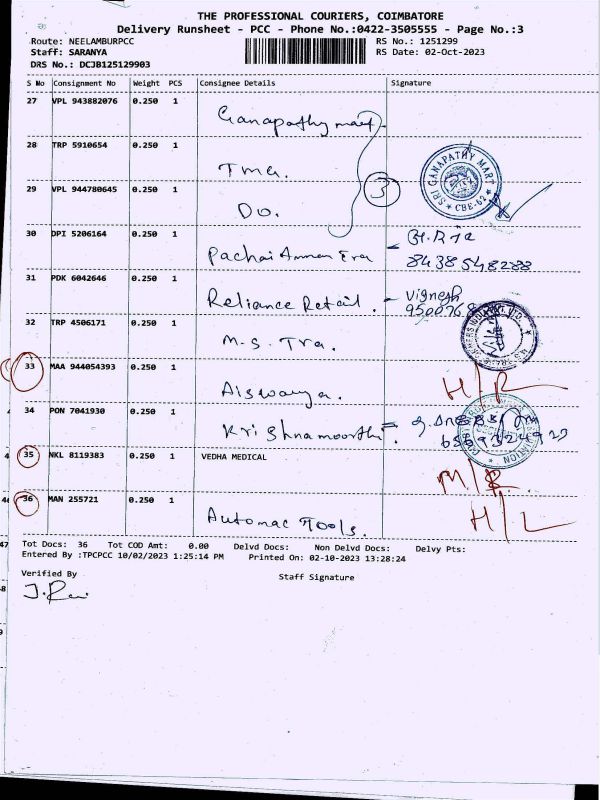 THE PROFESSIONAL COURIERS, COIMBATORE
Delivery Runsheet - PCC - Phone No.:0422-3505555 - Page No.:3
Route: NEELAMBURPCC
Staff: SARANYA
DRS No.: DCJB125129903
RS No.: 1251299
RS Date: 02-Oct-2023
S No Consignment No Weight PCS Consignee Details Signature
27 VPL 943882076 0.250 1 Ganapathy mart
28 TRP 5910654 0.250 1 Tma.
3
SRI GANAPATHY MART
* CBE-62 *
29 VPL 944780645 0.250 1 Do.
30 DPI 5206164 0.250 1 Pachai Amman Era
8438548288
31 PDK 6042646 0.250 1 Reliance Retail. - Vignesh
32 TRP 4506171 0.250 1 M.S. Tra.
33 MAA 944054393 0.250 1 Aiswarya. H/R
34 PON 7041930 0.250 1 Krishnamoorthi.
35 NKL 8119383 0.250 1 VEDHA MEDICAL
36 MAN 255721 0.250 1 Automac Tools. H/L
47 Tot Docs: 36 Tot COD Amt: 0.00 Delvd Docs: Non Delvd Docs: Delvy Pts:
Entered By :TPCPCC 10/02/2023 1:25:14 PM Printed On: 02-10-2023 13:28:24
Verified By
Staff Signature